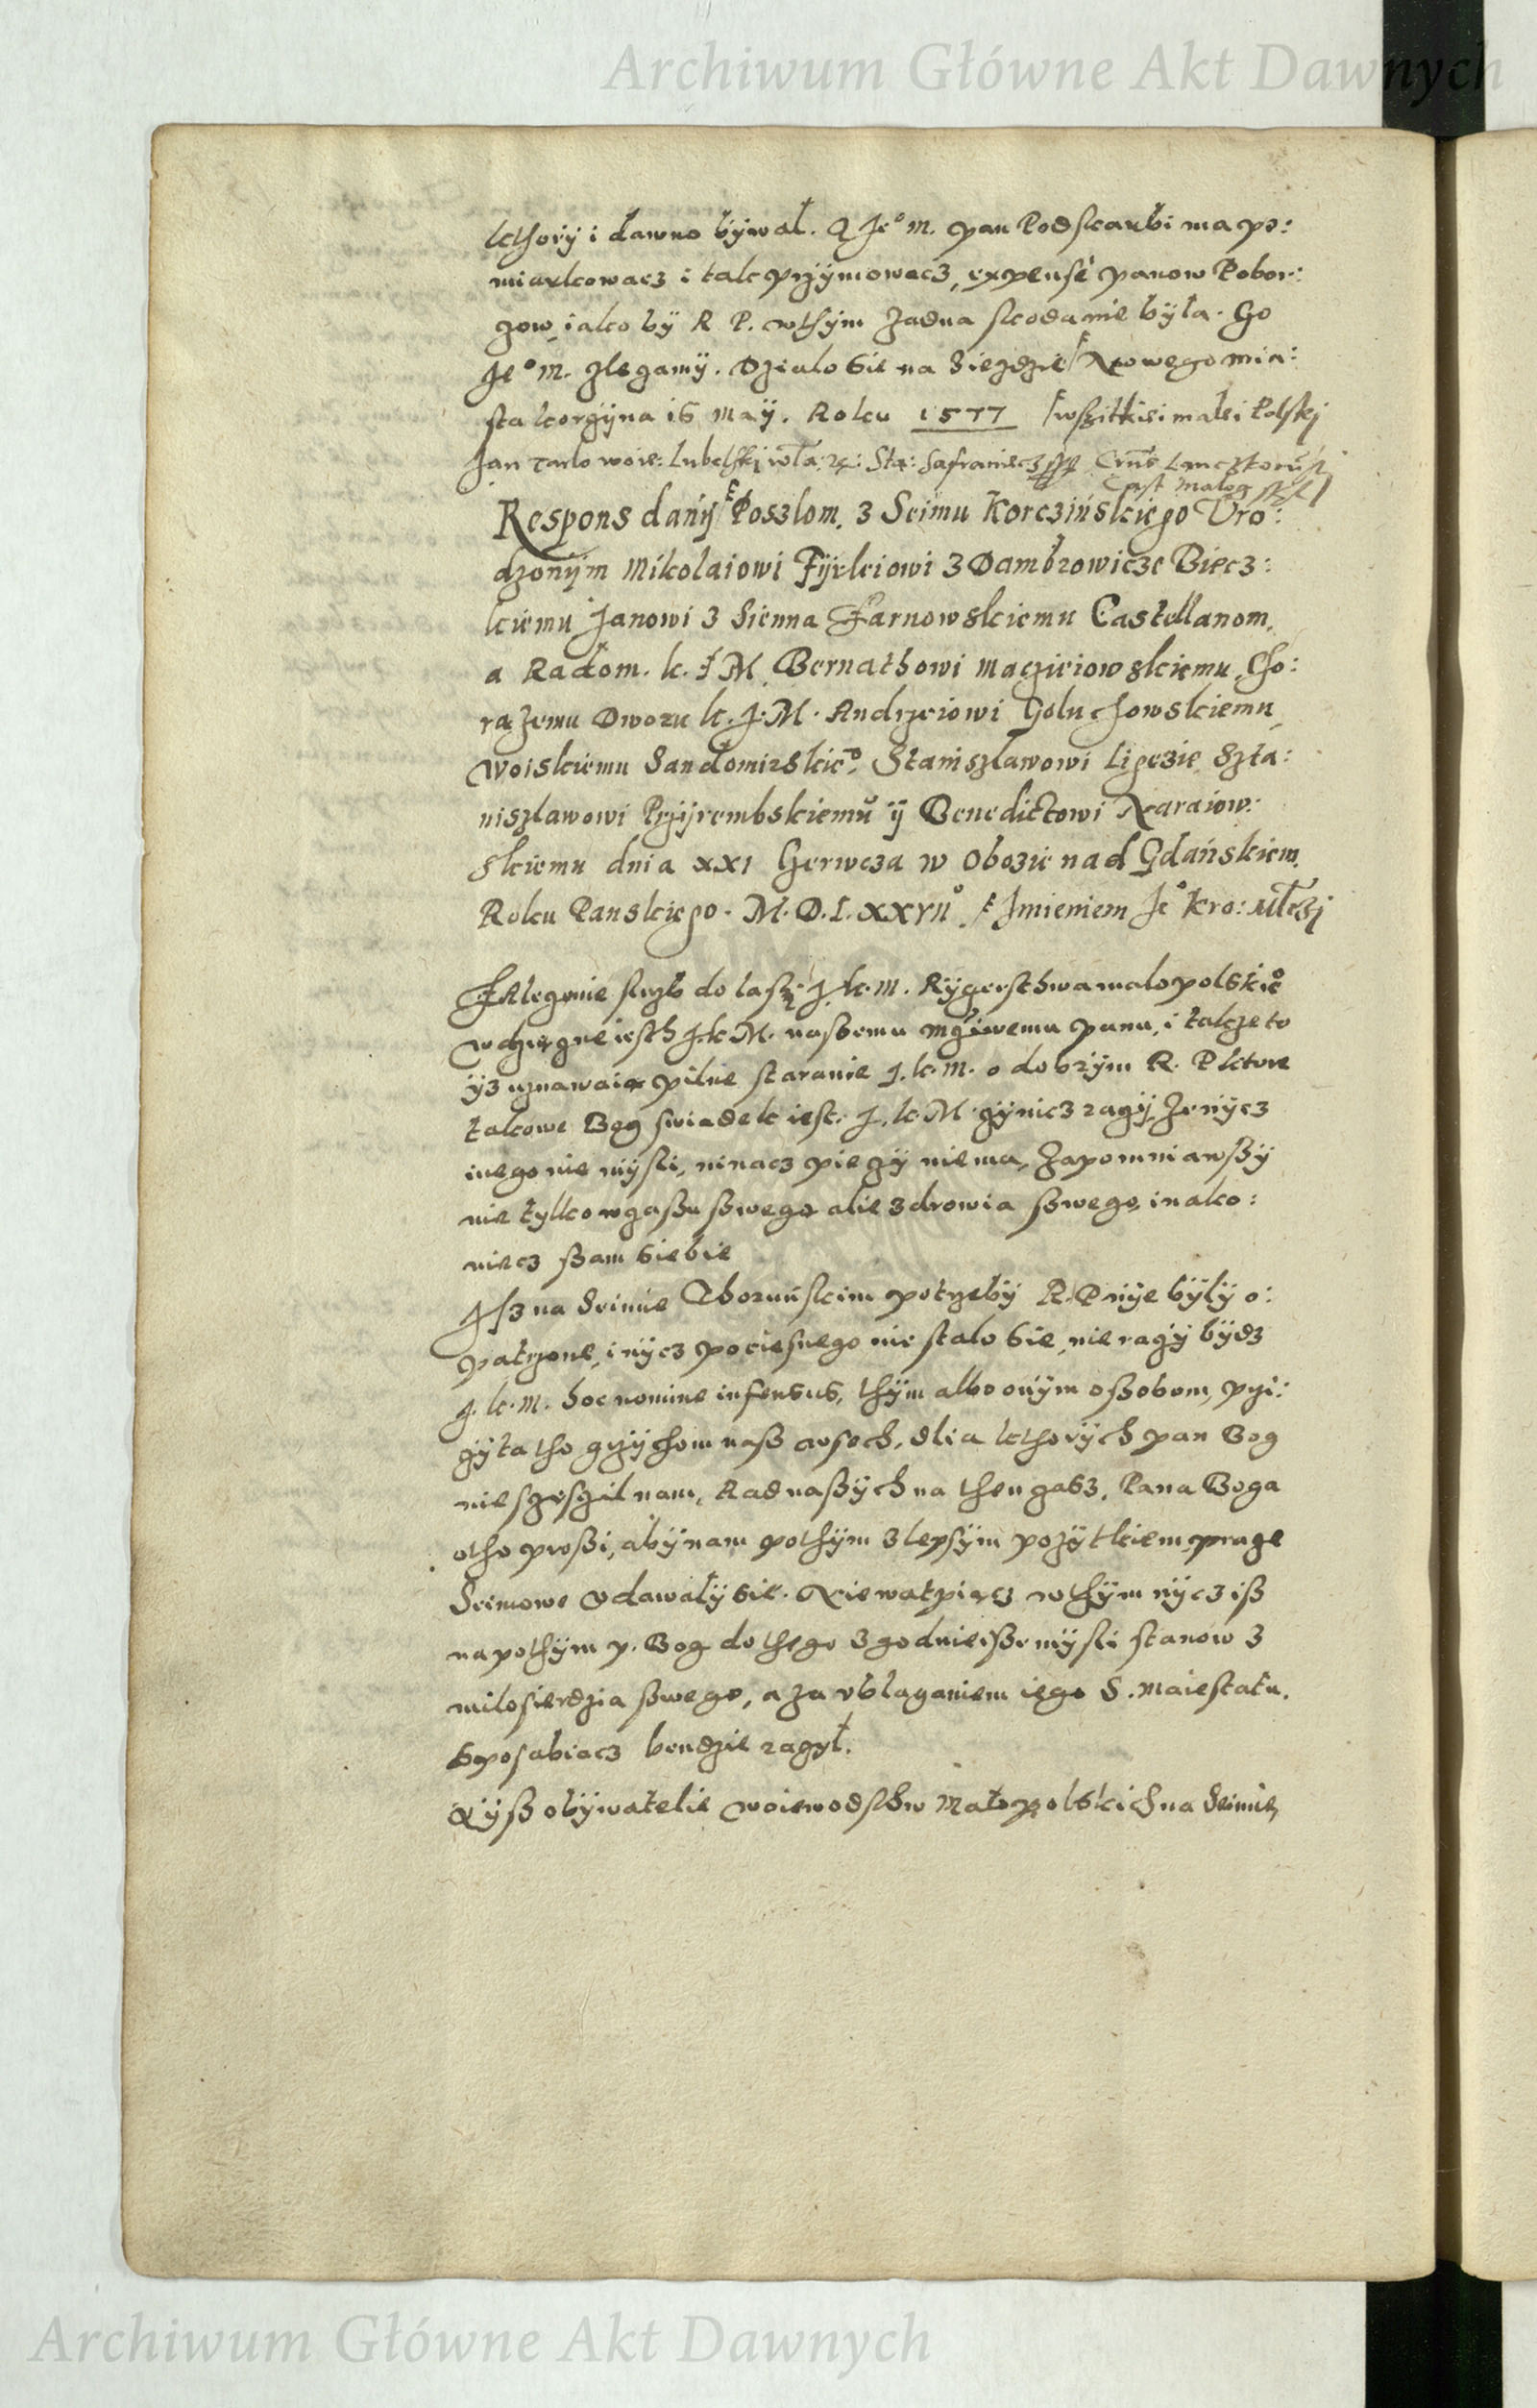 Archiwum Główne Akt Dawnych
kthory i dawno bywał. A Je° M. pan Podskarbi ma po:
miarkowacz i tak przymowacz, expensę panow Pobor:
czow, iako by R P. wthym zadna skoda nie była. Czo
Je° M. zlegamy. Dzialo sie na Siezdzie Nowego mia:
sta korczyna 16 Maÿ. Roku 1577 wszitkiei małei Polskj
Jan Tarlo woie: Lubelskj Sta: Safraniecz
Cast Malog
Respons dany Poszlom, z Seimu Korczińskiego Vro:
dzonym Mikolaiowi Fyrleiowi z Dambrowicze Biecz:
kiemu Janowi z Sienna Zarnowskiemu Castellanom,
a Radom. k. J M. Bernathowi Maczieiowskiemu, Cho:
razemu Dworu k. J. M. Andrzeiowi Goluchowskiemu,
Woiskiemu Sandomirskie°, Staniszlawowi Ligęzie, Szta:
niszlawowi Przyrembskiemu ÿ Benedictowi Naraiow:
skiemu dnia XXI Czerwcza w Obozie nad Gdańskiem.
Roku Panskiego. M.D.L.XXVII° Jmieniem Je° Kro: Młczj
Zalegonie sluzb do lasz: J. k. m. Rÿcersthwa malopolskie°
wdzięgne iesth J.k.M. naszemu mgiwemu panu, i takze to
yz uznawaią pilne staranie J. k. m. o dobrym R. P ktore
takowe Bog swiadek iest. J. k. M. czynicz raczy, ze nycz
inego nie mysli, ninacz pieczy nie ma, Zapomniawszy
nie tylko wczasu szwego alie zdrowia szwego, i nako:
niecz szam siebie
Isz na Seimie Thoruńskim potrzeby R. P nye były o:
patrzone, i nycz pociesnego nie stalo sie, nie raczy bydz
J. k. m. hoc nomine infensus, thym albo onym oszobom, przi:
czyta tho grzychom nasz wsech, dlia kthorych pan Bog
nie szesczil nam, Rad naszych na then czasz, Pana Boga
otho proszi, aby nam pothym z lepszym pozytkiem prace
Seimowe vdawały sie. Nie wątpiącz wthym nycz isz
napothym p. Bog do thego zgodnieisze mysli stanow z
milosierdzia szwego, a za vblaganiem iego S. Maiestatu.
sposabiacz bendzie raczył.
Nysz obywatelie woiewodsthw Małopolskich na Seimie,
Archiwum Główne Akt Dawnych